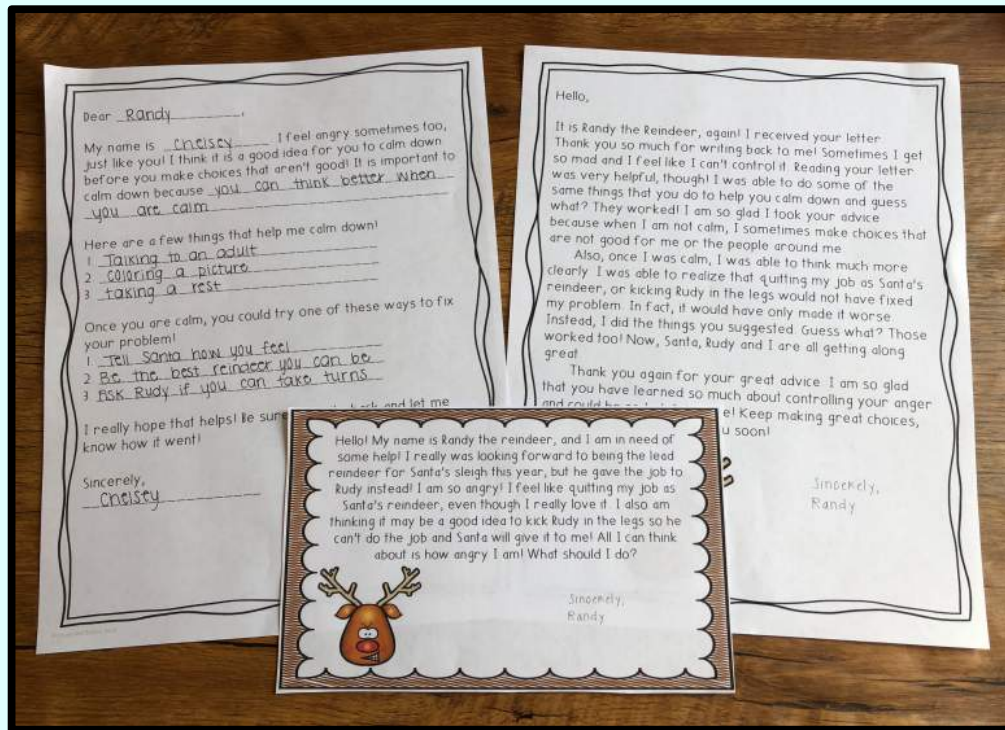 Dear Randy,
My name is Chelsey I feel angry sometimes too,
just like you! I think it is a good idea for you to calm down
before you make choices that aren't good! It is important to
calm down because you can think better when
you are calm
Here are a few things that help me calm down!
1 Talking to an adult
2 coloring a picture
3 taking a rest
Once you are calm, you could try one of these ways to fix
your problem!
1 Tell Santa how you feel
2 Be the best reindeer you can be
3 Ask Rudy if you can take turns
I really hope that helps! Be sure and let me
know how it went!
Sincerely,
Chelsey
Hello,
It is Randy the Reindeer, again! I received your letter
Thank you so much for writing back to me! Sometimes I get
so mad and I feel like I can't control it. Reading your letter
was very helpful, though! I was able to do some of the
same things that you do to help you calm down and guess
what? They worked! I am so glad I took your advice
because when I am not calm, I sometimes make choices that
are not good for me or the people around me
Also, once I was calm, I was able to think much more
clearly I was able to realize that quitting my job as Santa's
reindeer, or kicking Rudy in the legs would not have fixed
my problem. In fact, it would have only made it worse.
Instead, I did the things you suggested. Guess what? Those
worked too! Now, Santa, Rudy and I are all getting along
great
Thank you again for your great advice. I am so glad
that you have learned so much about controlling your anger
and could e! Keep making great choices,
u soon!
Sincerely,
Randy
Hello! My name is Randy the reindeer, and I am in need of
some help! I really was looking forward to being the lead
reindeer for Santa's sleigh this year, but he gave the job to
Rudy instead! I am so angry! I feel like quitting my job as
Santa's reindeer, even though I really love it. I also am
thinking it may be a good idea to kick Rudy in the legs so he
can't do the job and Santa will give it to me! All I can think
about is how angry I am! What should I do?
Sincerely,
Randy